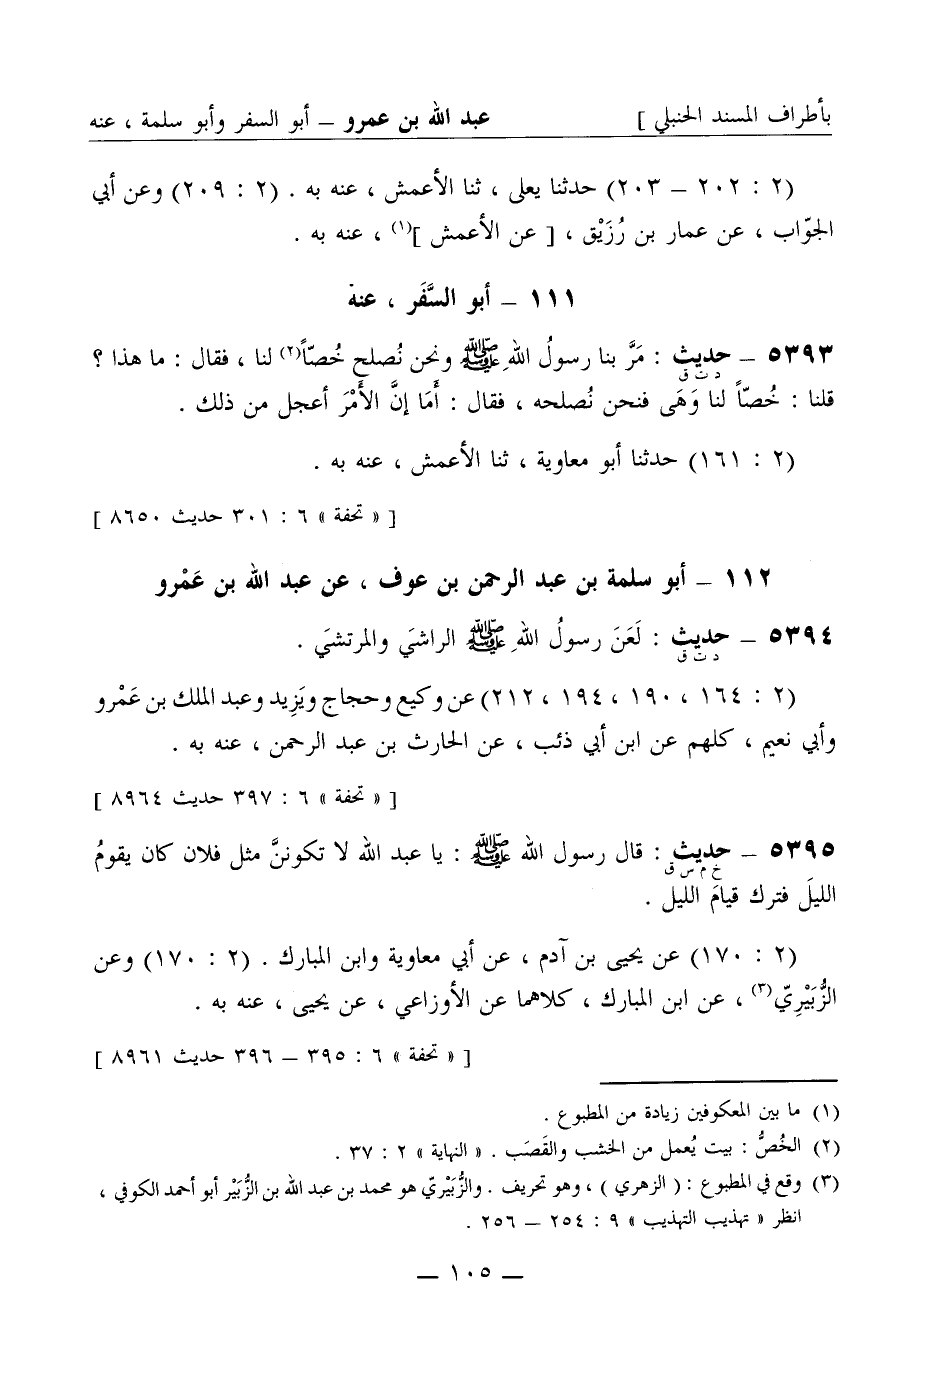 بأطراف المسند الحنبلي ] عبد الله بن عمرو – أبو السفر وأبو سلمة ، عنه
(٢ : ٢٠٢ – ٢٠٣) حدثنا يعلى ، ثنا الأعمش ، عنه به . (٢ : ٢٠٩) وعن أبي
الجوّاب ، عن عمار بن رُزَيْق ، [ عن الأعمش ](١) ، عنه به .
١١١ – أبو السَّفَر ، عنه
٥٣٩٣ – حديث : مَرَّ بنا رسولُ اللهِ ﷺ ونحن نُصلح خُصّاً(٢) لنا ، فقال : ما هذا ؟
د ت ق
قلنا : خُصّاً لنا وَهَى فنحن نُصلحه ، فقال : أَمَا إنَّ الأَمْرَ أعجل من ذلك .
(٢ : ١٦١) حدثنا أبو معاوية ، ثنا الأعمش ، عنه به .
[ « تحفة » ٦ : ٣٠١ حديث ٨٦٥٠ ]
١١٢ – أبو سلمة بن عبد الرحمن بن عوف ، عن عبد الله بن عَمْرو
٥٣٩٤ – حديث : لَعَنَ رسولُ اللهِ ﷺ الراشيَ والمرتشيَ .
د ت ق
(٢ : ١٦٤ ، ١٩٠ ، ١٩٤ ، ٢١٢) عن وكيع وحجاج ويَزِيد وعبد الملك بن عَمْرو
وأبي نعيم ، كلهم عن ابن أبي ذئب ، عن الحارث بن عبد الرحمن ، عنه به .
[ « تحفة » ٦ : ٣٩٧ حديث ٨٩٦٤ ]
٥٣٩٥ – حديث : قال رسول الله ﷺ : يا عبد الله لا تكوننَّ مثل فلان كان يقومُ
خ م س ق
الليلَ فترك قيامَ الليل .
(٢ : ١٧٠) عن يحيى بن آدم ، عن أبي معاوية وابن المبارك . (٢ : ١٧٠) وعن
الزُّبَيْرِيّ(٣) ، عن ابن المبارك ، كلاهما عن الأوزاعي ، عن يحيى ، عنه به .
[ « تحفة » ٦ : ٣٩٥ – ٣٩٦ حديث ٨٩٦١ ]
(١) ما بين المعكوفين زيادة من المطبوع .
(٢) الخُصُّ : بيت يُعمل من الخشب والقَصَب . « النهاية » ٢ : ٣٧ .
(٣) وقع في المطبوع : ( الزهري ) ، وهو تحريف . والزُّبَيْريّ هو محمد بن عبد الله بن الزُّبَيْر أبو أحمد الكوفي ،
انظر « تهذيب التهذيب » ٩ : ٢٥٤ – ٢٥٦ .
– ١٠٥ –